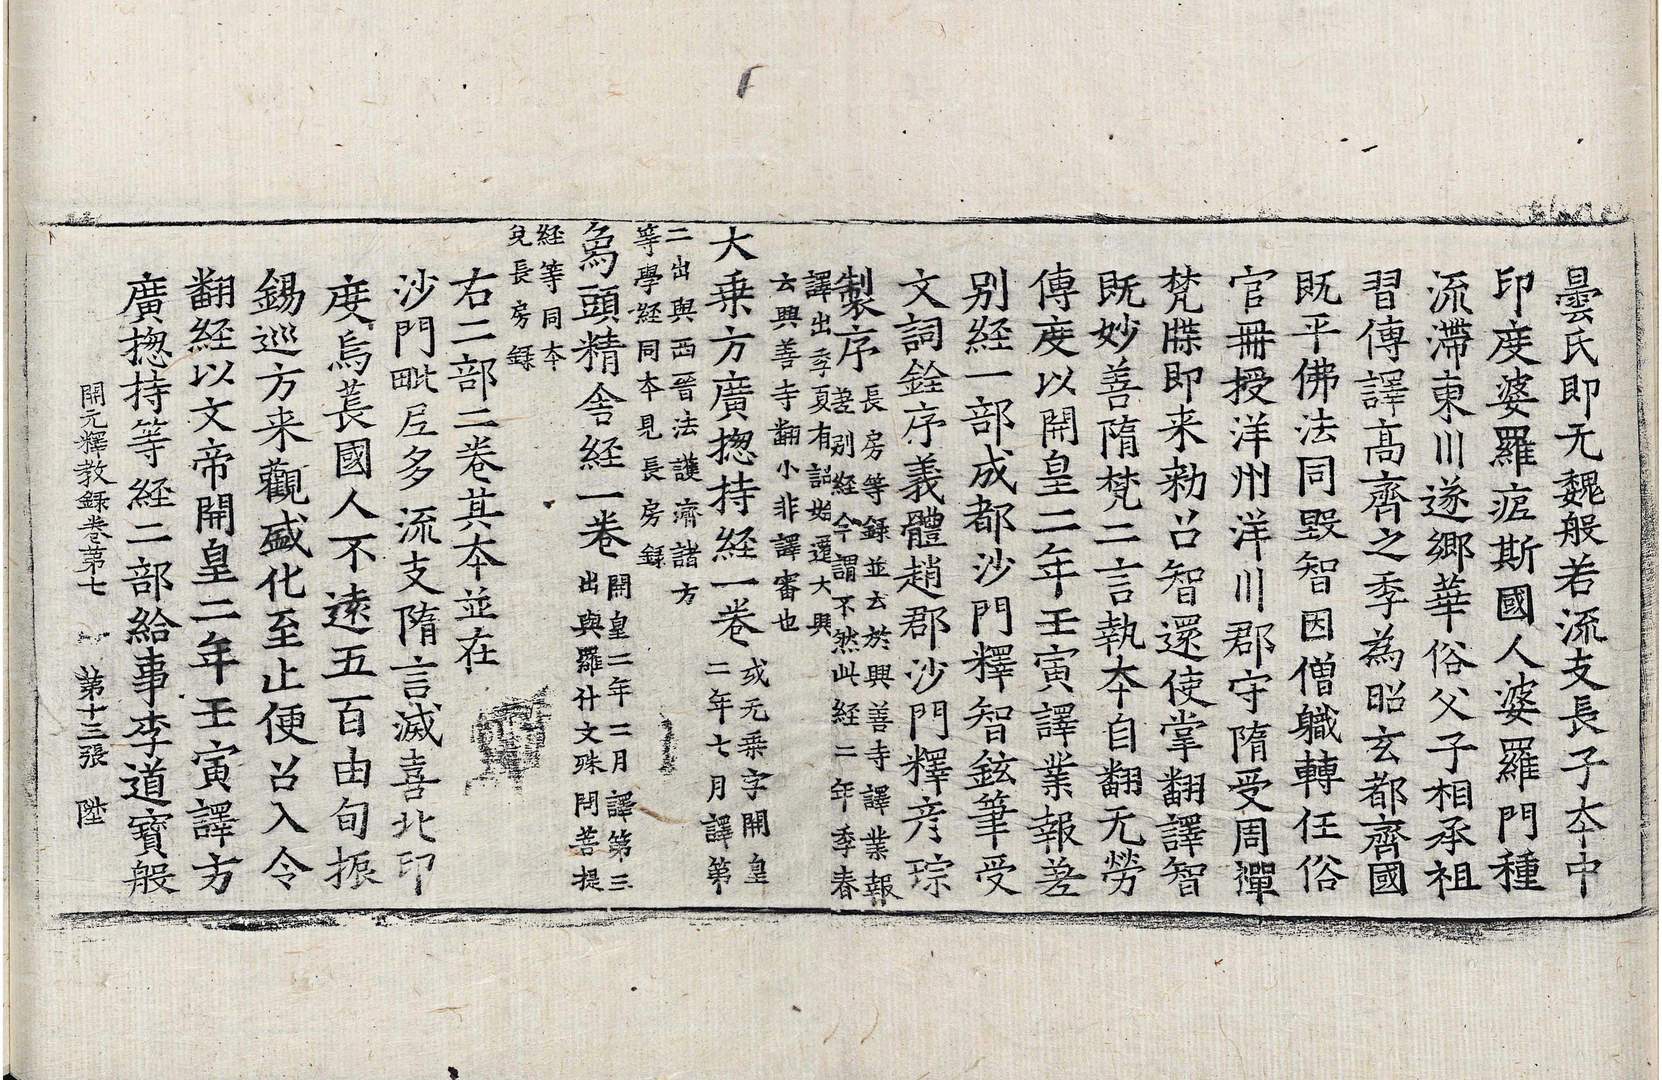 曇氏即元魏般若流支長子本中
印度婆羅痆斯國人婆羅門種
流滯東川遂鄉華俗父子相承祖
習傳譯高齊之季為昭玄都齊國
既平佛法同毀智因僧職轉任俗
官冊授洋州洋川郡守隋受周禪
梵牒即来勑召智還使掌翻譯智
既妙善隋梵二言執本自翻无勞
傳度以開皇二年壬寅譯業報差
別経一部成都沙門釋智鉉筆受
文詞銓序義體趙郡沙門釋彦琮
製序長房等錄並云於興善寺譯業報
差別経今謂不然此経二年季春
譯出季夏有詔始遷大興
云興善寺翻小非譯審也
大乗方廣揔持経一卷或无乗字開皇
二年七月譯第
二出與西晉法護濟諸方
等學経同本見長房錄
烏頭精舍経一卷開皇二年二月譯第三
出與羅什文殊問菩提
経等同本
見長房錄
右二部二卷其本並在
沙門毗尼多流支隋言滅喜北印
度烏萇國人不遠五百由旬振
錫巡方来觀盛化至止便召入令
翻経以文帝開皇二年壬寅譯方
廣揔持等経二部給事李道寶般
開元釋教錄卷第七 第十三張 陞